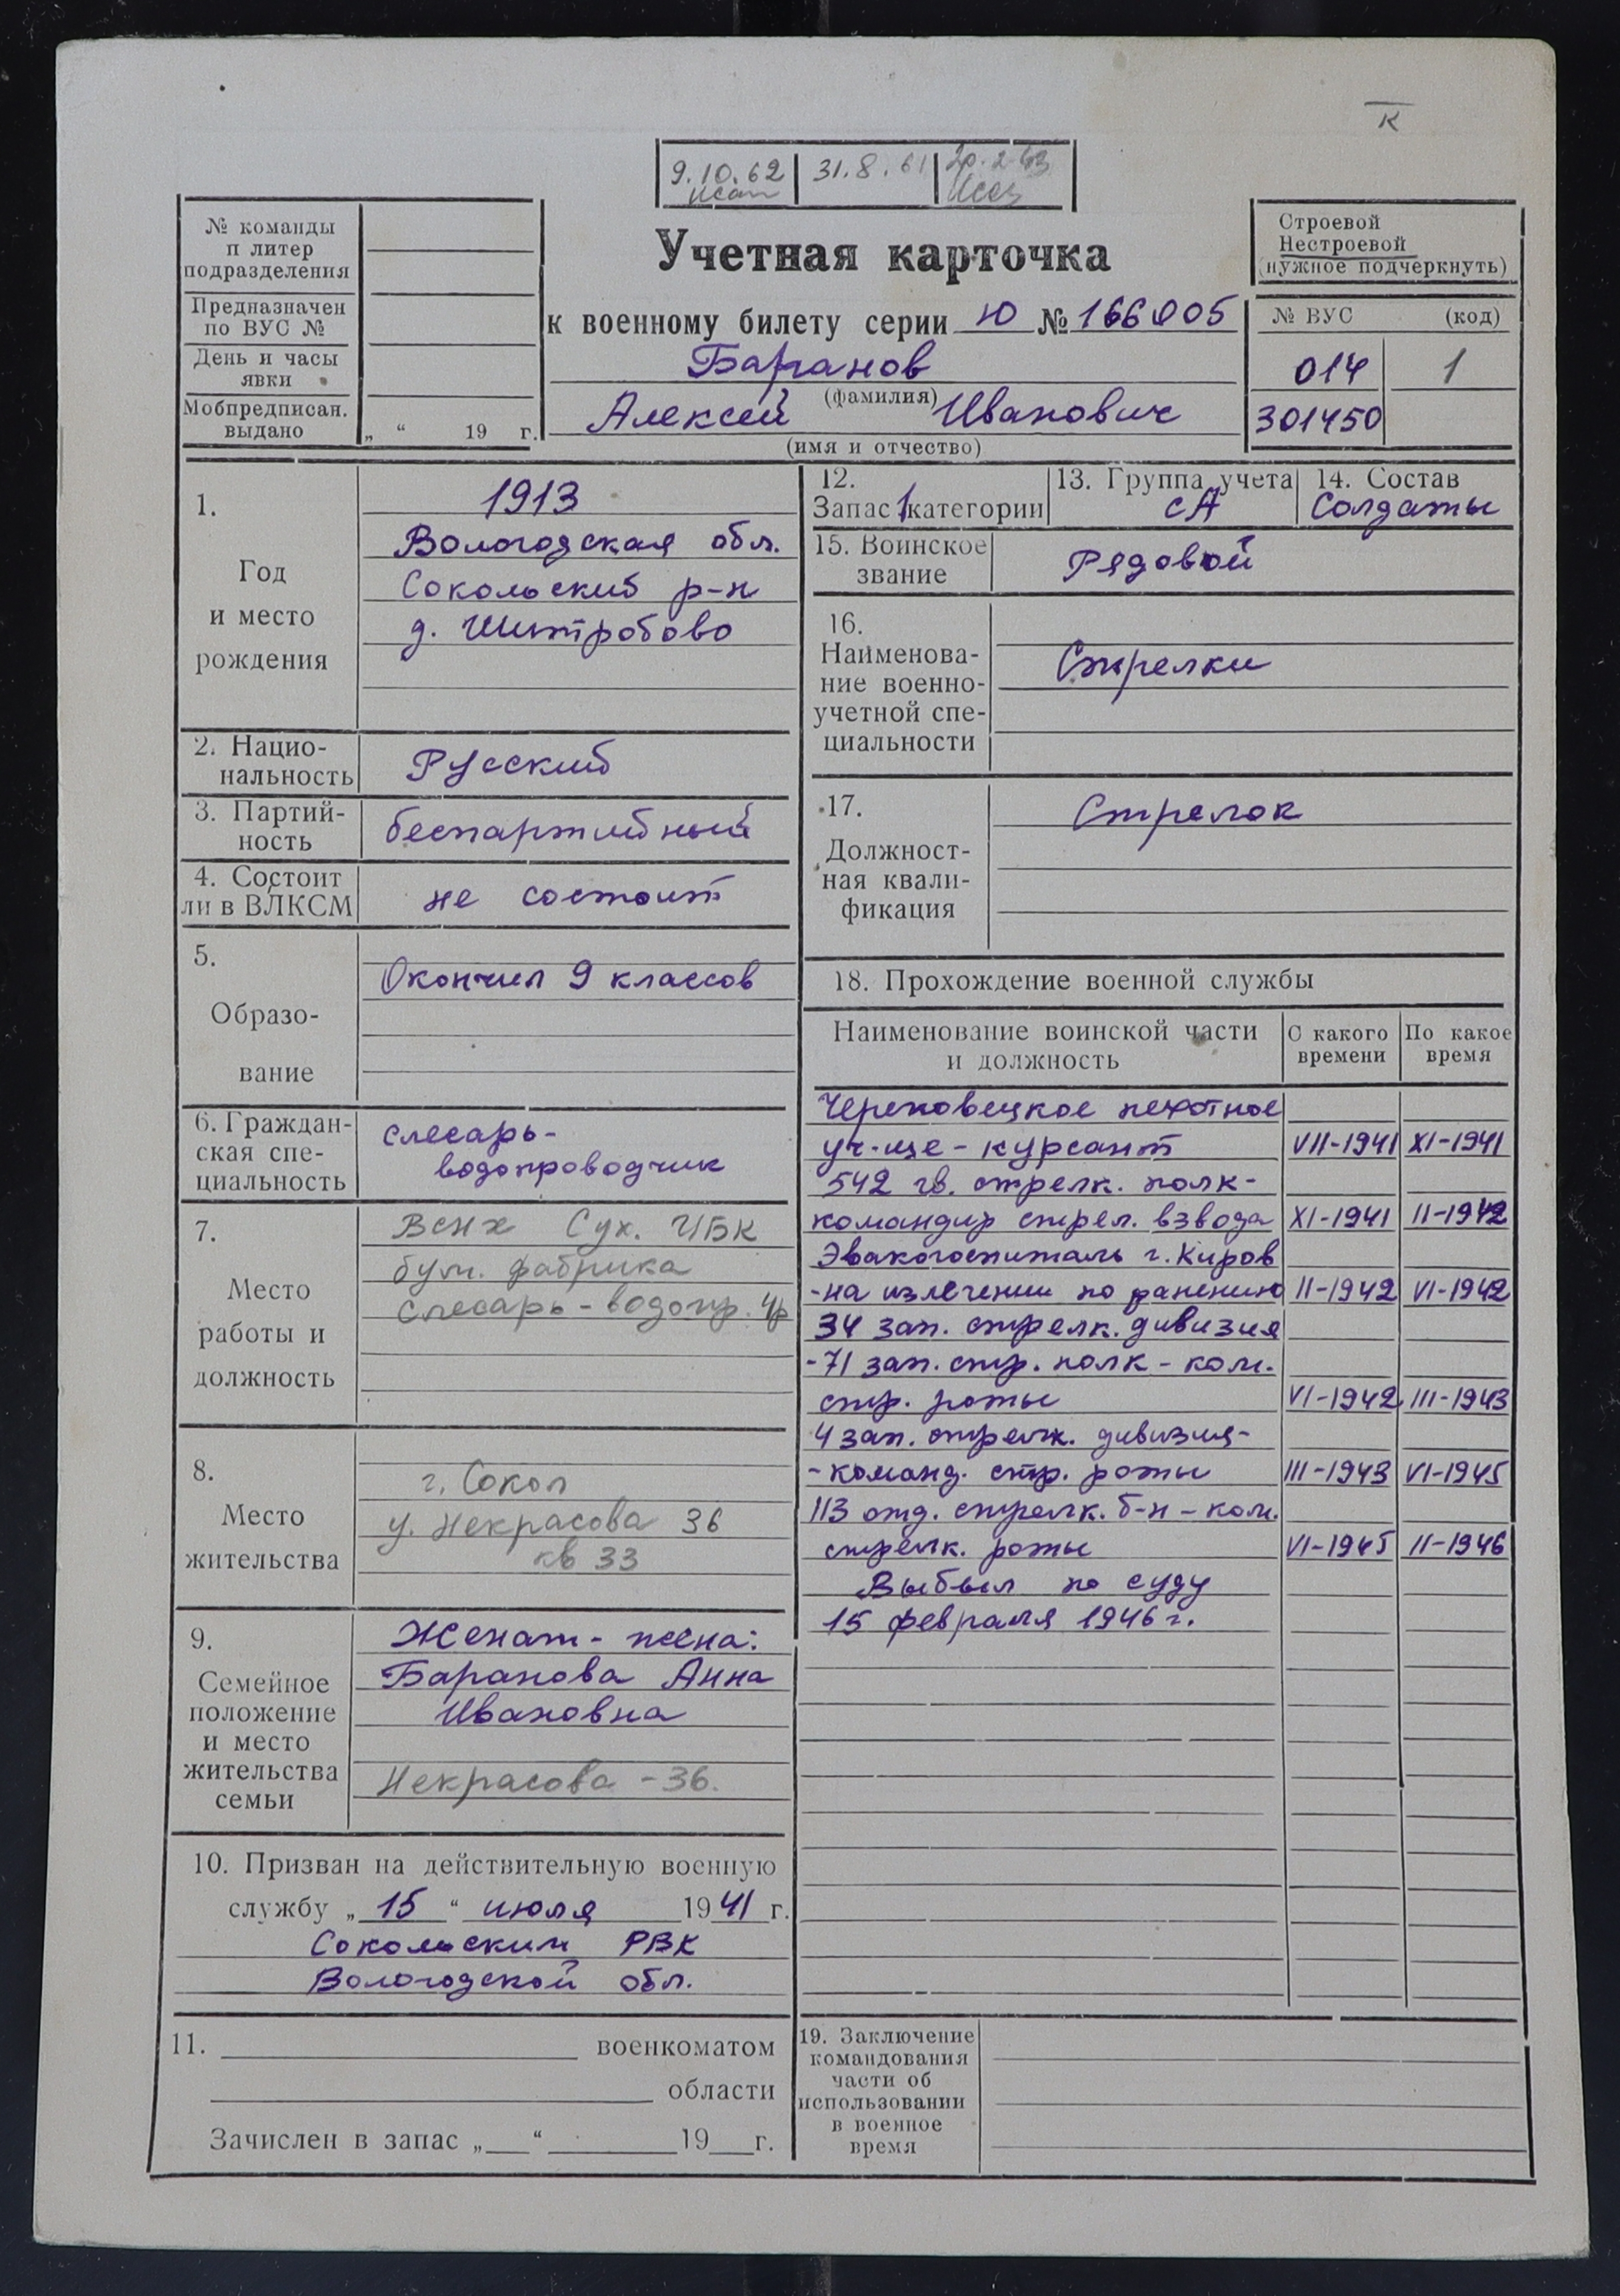 К
9.10.62 31.8.61 20.2.63
№ команды
п литер
подразделения
Предназначен
по ВУС №
День и часы
явки
Мобпредписан.
выдано
„ “ 19 г.
Учетная карточка
к военному билету серии Ю № 166905
Баранов
(фамилия)
Алексей Иванович
(имя и отчество)
Строевой
Нестроевой
(нужное подчеркнуть)
№ ВУС (код)
014 1
301450
1.
Год
и место
рождения
1913
Вологодская обл.
Сокольский р-н
д. Шитробово
2. Нацио-
нальность
Русский
3. Партий-
ность
беспартийный
4. Состоит
ли в ВЛКСМ
не состоит
5.
Образо-
вание
Окончил 9 классов
6. Граждан-
ская спе-
циальность
слесарь-
водопроводчик
7.
Место
работы и
должность
ВСНХ Сух. ЦБК
бум. фабрика
Слесарь-водопр. 4р
8.
Место
жительства
г. Сокол
у. Некрасова 36
кв 33
9.
Семейное
положение
и место
жительства
семьи
Женат - жена:
Баранова Анна
Ивановна
Некрасова - 36.
10. Призван на действительную военную
службу „ 15 “ июля 1941 г.
Сокольским РВК
Вологодской обл.
11. военкоматом
области
Зачислен в запас „ “ 19 г.
12.
Запас 1 категории
13. Группа учета
СА
14. Состав
Солдаты
15. Воинское
звание
Рядовой
16.
Наименова-
ние военно-
учетной спе-
циальности
Стрелки
17.
Должност-
ная квали-
фикация
Стрелок
18. Прохождение военной службы
Наименование воинской части
и должность
С какого
времени
По какое
время
Череповецкое пехотное
уч-ще - курсант VII-1941 XI-1941
542 гв. стрелк. полк-
командир стрел. взвода XI-1941 II-1942
Эвакогоспиталь г. Киров
-на излечении по ранению II-1942 VI-1942
34 зап. стрелк. дивизия
-71 зап. стр. полк - ком.
стр. роты VI-1942 III-1943
4 зап. стрелк. дивизия-
-команд. стр. роты III-1943 VI-1945
113 отд. стрелк. б-н - ком.
стрелк. роты VI-1945 II-1946
Выбыл по суду
15 февраля 1946 г.
19. Заключение
командования
части об
использовании
в военное
время